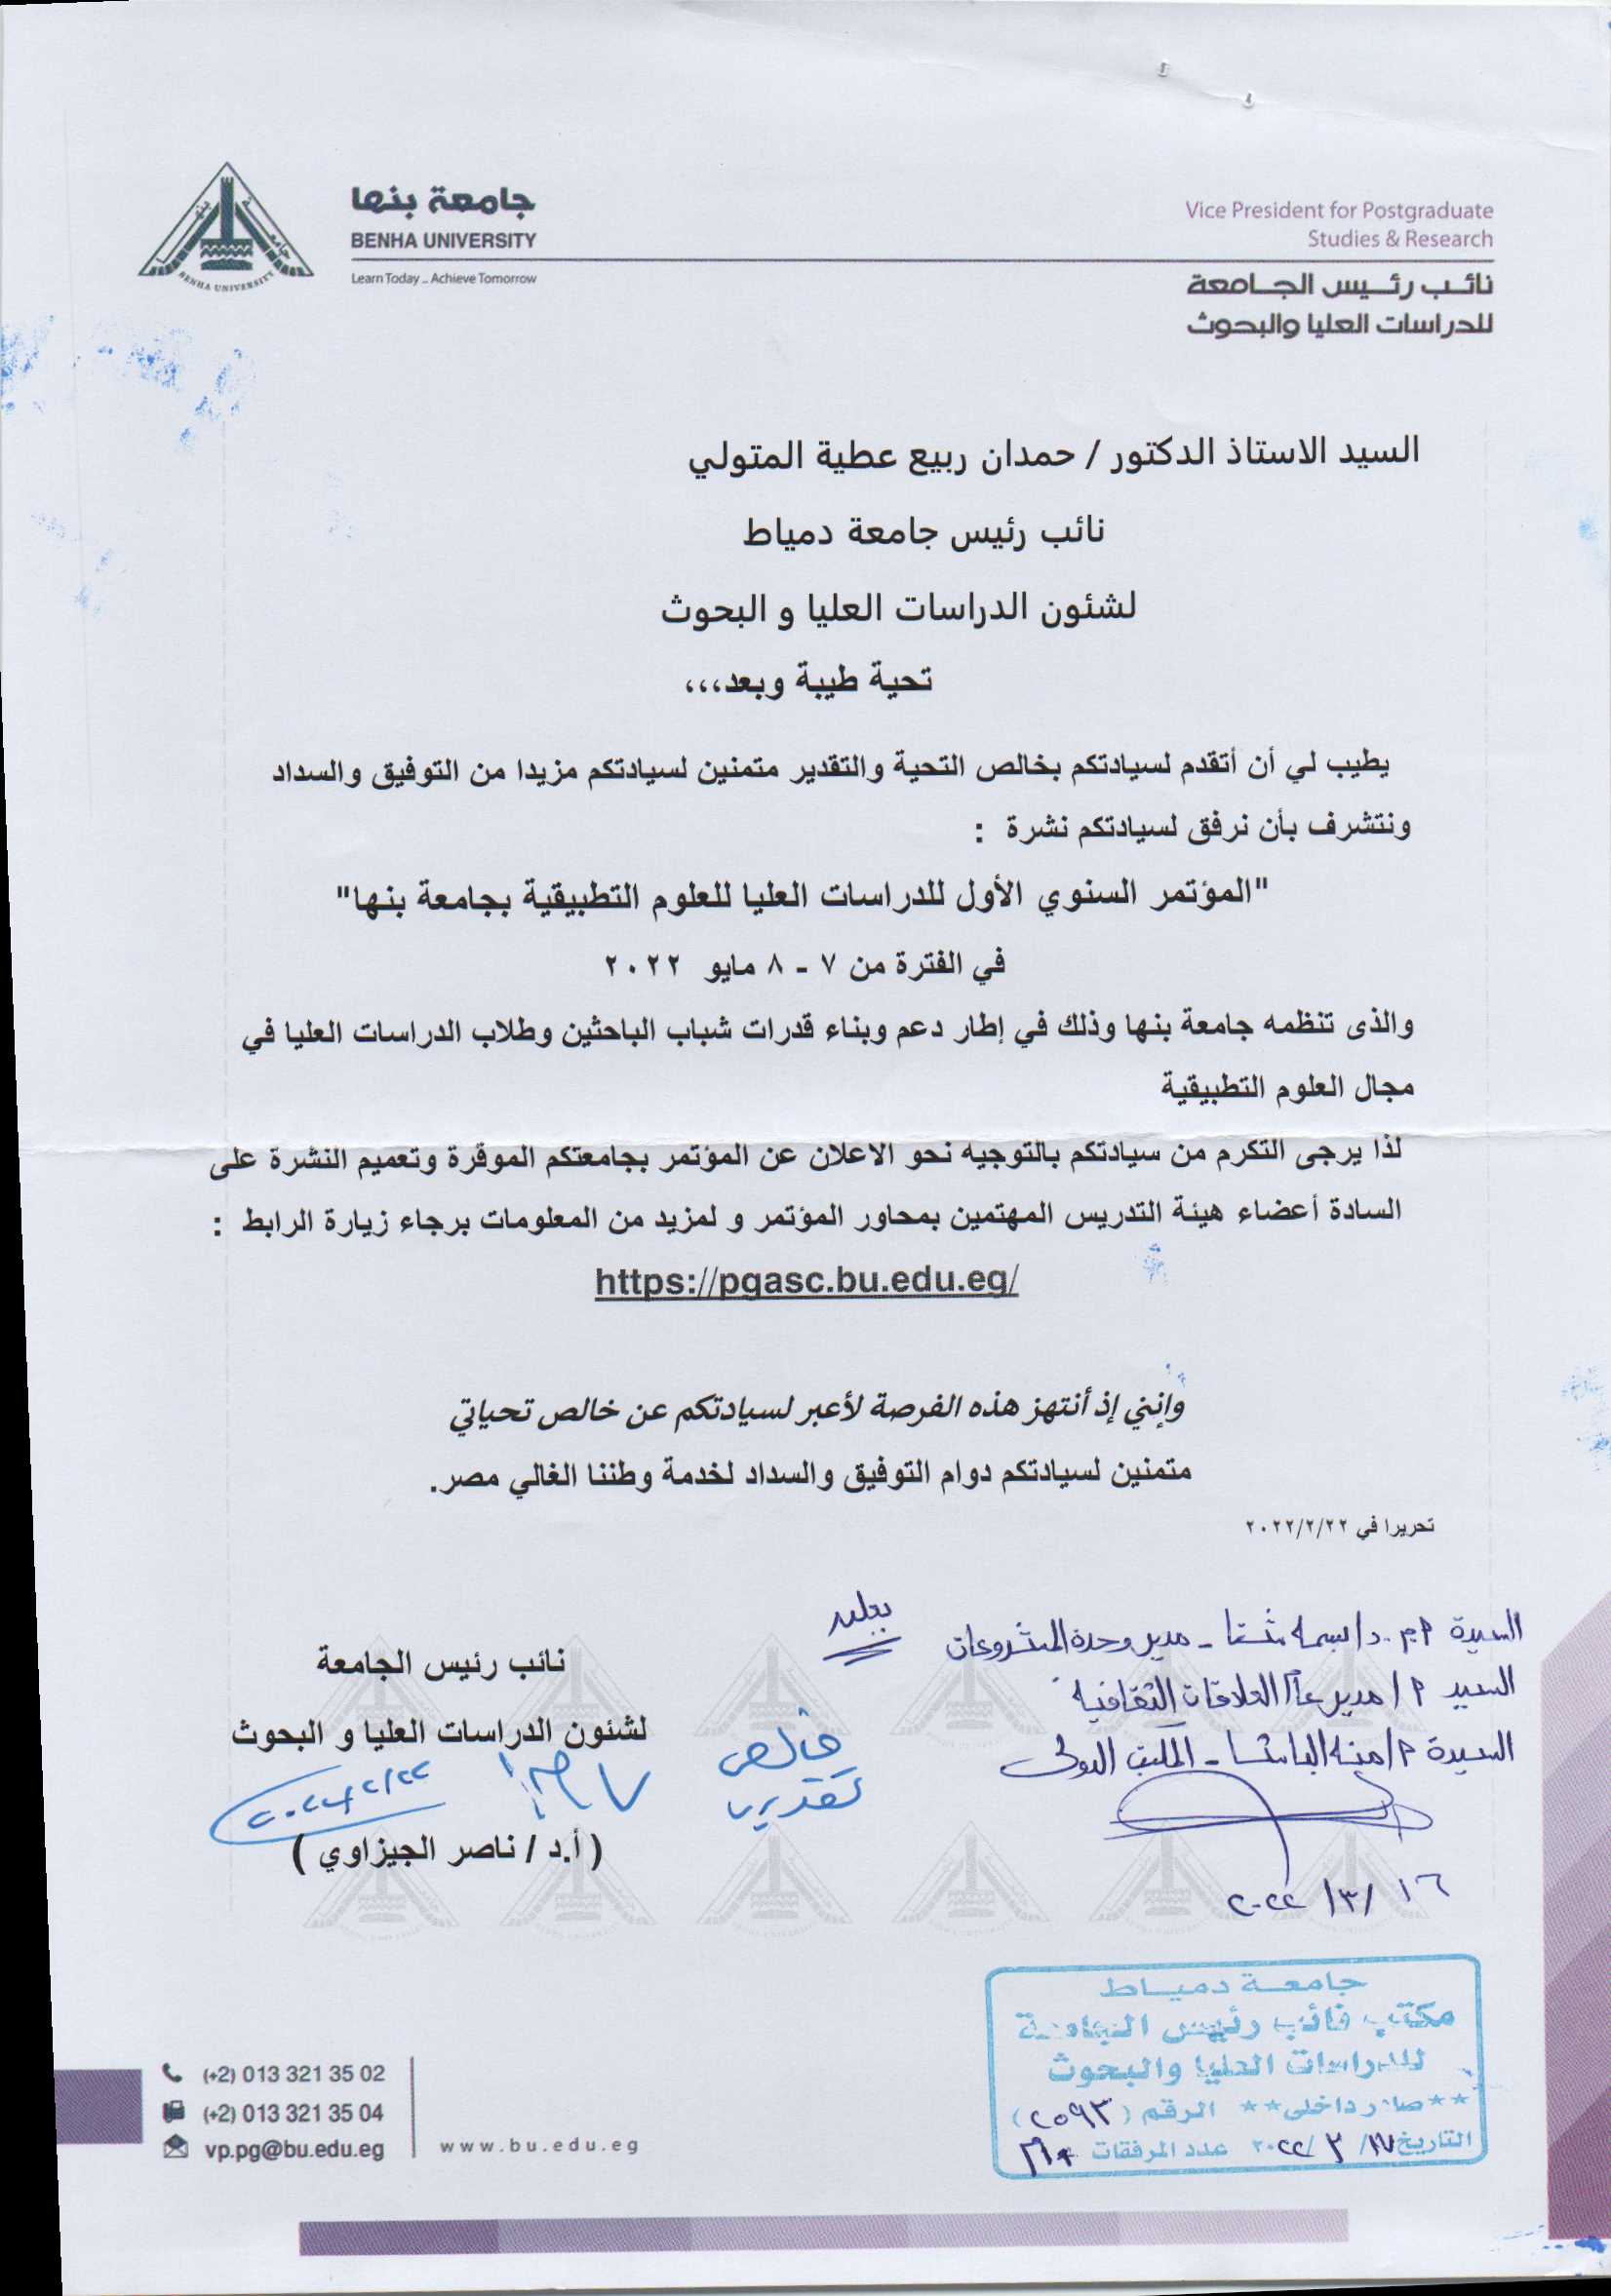 جامعة بنها
BENHA UNIVERSITY
Learn Today .. Achieve Tomorrow
Vice President for Postgraduate
Studies & Research
نائب رئيس الجامعة
للدراسات العليا والبحوث
السيد الاستاذ الدكتور / حمدان ربيع عطية المتولي
نائب رئيس جامعة دمياط
لشئون الدراسات العليا و البحوث
تحية طيبة وبعد،،،
يطيب لي أن أتقدم لسيادتكم بخالص التحية والتقدير متمنين لسيادتكم مزيدا من التوفيق والسداد
ونتشرف بأن نرفق لسيادتكم نشرة :
"المؤتمر السنوي الأول للدراسات العليا للعلوم التطبيقية بجامعة بنها"
في الفترة من ٧ - ٨ مايو ٢٠٢٢
والذى تنظمه جامعة بنها وذلك في إطار دعم وبناء قدرات شباب الباحثين وطلاب الدراسات العليا في
مجال العلوم التطبيقية
لذا يرجى التكرم من سيادتكم بالتوجيه نحو الاعلان عن المؤتمر بجامعتكم الموقرة وتعميم النشرة على
السادة أعضاء هيئة التدريس المهتمين بمحاور المؤتمر و لمزيد من المعلومات برجاء زيارة الرابط :
https://pgasc.bu.edu.eg/
وإنني إذ أنتهز هذه الفرصة لأعبر لسيادتكم عن خالص تحياتي
متمنين لسيادتكم دوام التوفيق والسداد لخدمة وطننا الغالي مصر.
تحريرا في ٢٠٢٢/٢/٢٢
السيدة د/ بسمه - مدير وحدة المشروعات
السيد م / مدير عام العلاقات الثقافية
السيدة م / منه الباشا - المكتب الدولى
١٦ /٣/ ٢٠٢٢
خالص
تقديرى
نائب رئيس الجامعة
لشئون الدراسات العليا و البحوث
٢٠٢٢/٢/٢٢
( أ.د / ناصر الجيزاوي )
جامعة دمياط
مكتب نائب رئيس الجامعة
للدراسات العليا والبحوث
**صادر داخلى** الرقم (٢٥٩٣)
التاريخ ١٧/ ٣ /٢٠٢٢ عدد المرفقات
(+2) 013 321 35 02
(+2) 013 321 35 04
vp.pg@bu.edu.eg
www.bu.edu.eg